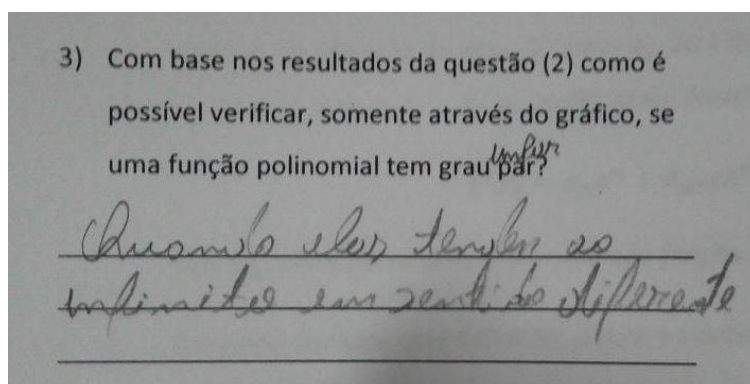 3) Com base nos resultados da questão (2) como é
possível verificar, somente através do gráfico, se
uma função polinomial tem grau ímpar par?
Quando eles tendem ao
infinito em sentido diferente